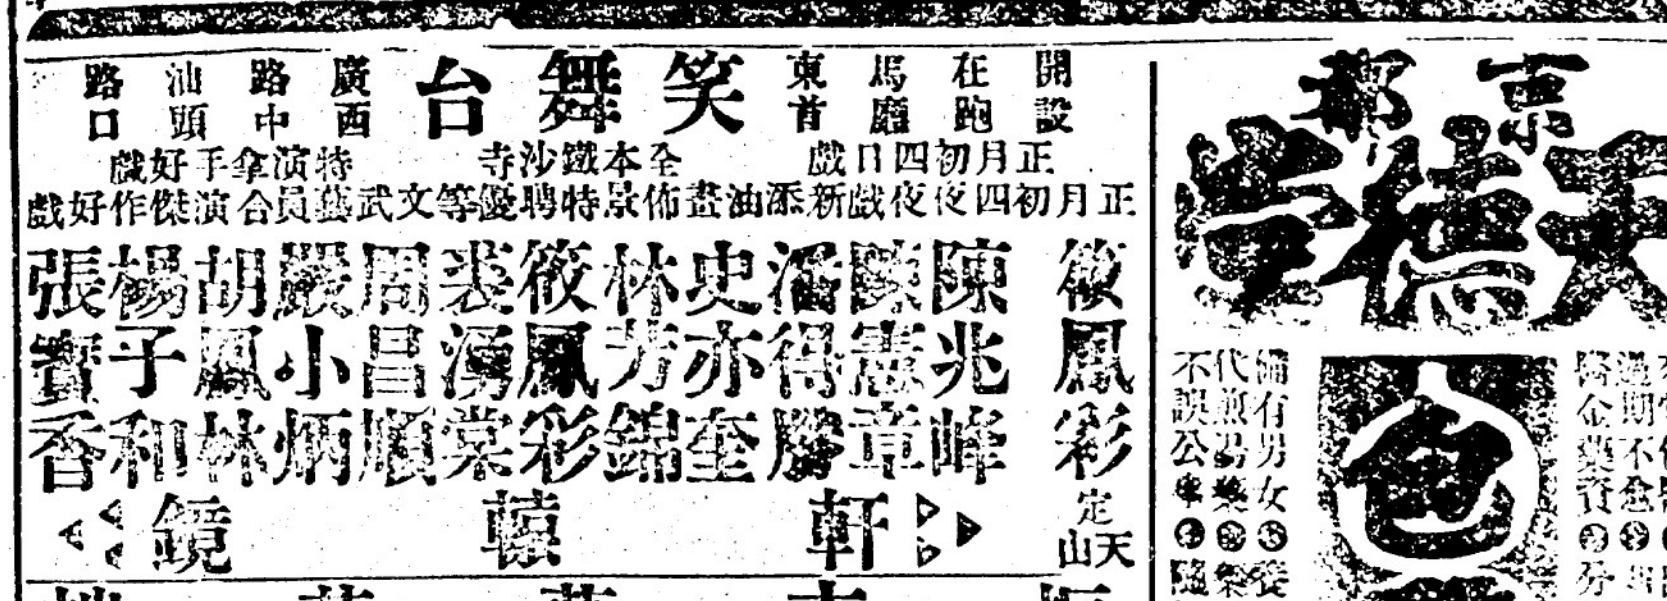 開設在跑馬廳東首
笑舞台
廣西路中汕頭路口
正月初四日戲
全本鐵沙寺
特演拿手好戲
正月初四夜夜戲新添油畫佈景特聘優等文武藝員合演傑作好戲
筱鳳彩
陳兆峰
陳憲章
潘得勝
史亦奎
林芳錦
筱鳳彩
裘棠
周昌順
嚴小炳
胡鳳林
楊子和
張寶香
定天山
軒轅鏡
京都
天德
過期不
醫金藥資
包
備有男女
代煎湯藥
不誤公事